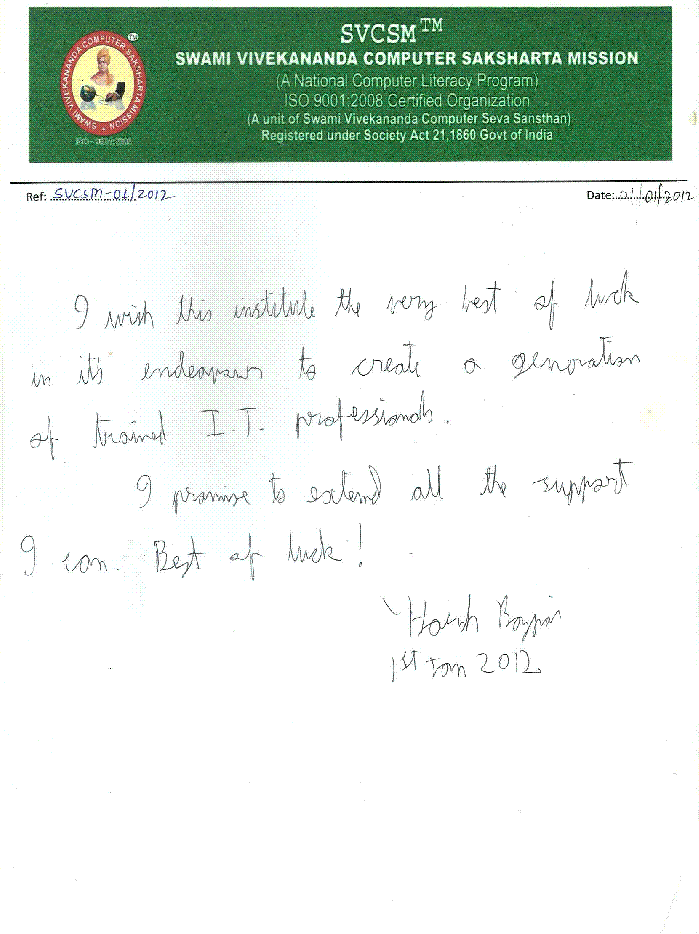 SVCSM™
SWAMI VIVEKANANDA COMPUTER SAKSHARTA MISSION
(A National Computer Literacy Program)
ISO 9001:2008 Certified Organization
(A unit of Swami Vivekananda Computer Seva Sansthan)
Registered under Society Act 21,1860 Govt of India
SWAMI VIVEKANANDA COMPUTER SAKSHARTA MISSION TM
Ref: SVCSM-01/2012 Date: 01/01/2012
I wish this institute the very best of luck
in it's endeavours to create a generation
of trained I.T. professionals.
I promise to extend all the support
I can. Best of luck!
Bajpai
1st Jan 2012